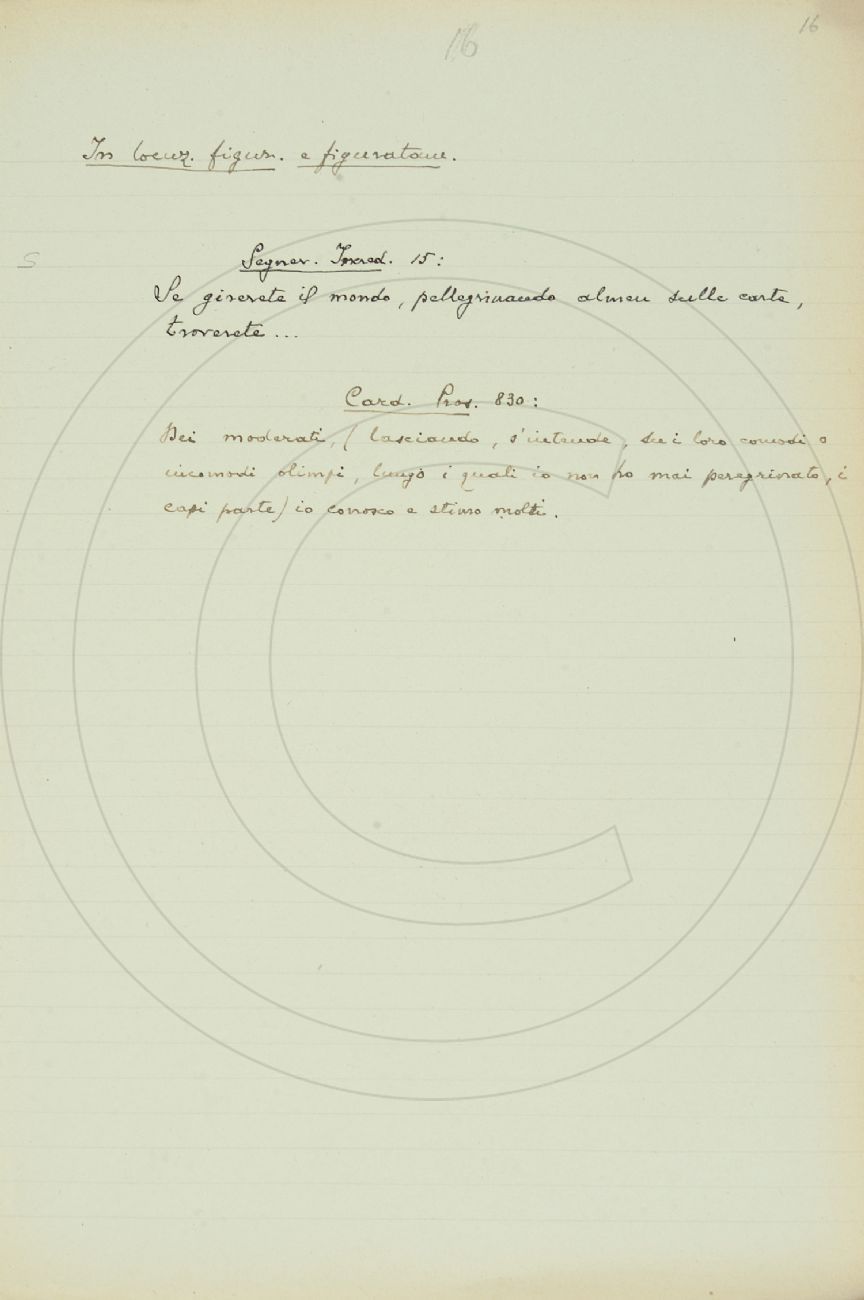 16
16
In locuz. figur. e figuratam.
S
Segner. Incred. 15:
Se girerete il mondo, pellegrinando almen sulle carte,
troverete ...
Card. Pros. 830:
Dei moderati, (lasciando, s'intende, su i loro comodi o
incomodi olimpi, lungo i quali io non ho mai peregrinato, i
capi parte) io conosco e stimo molti.